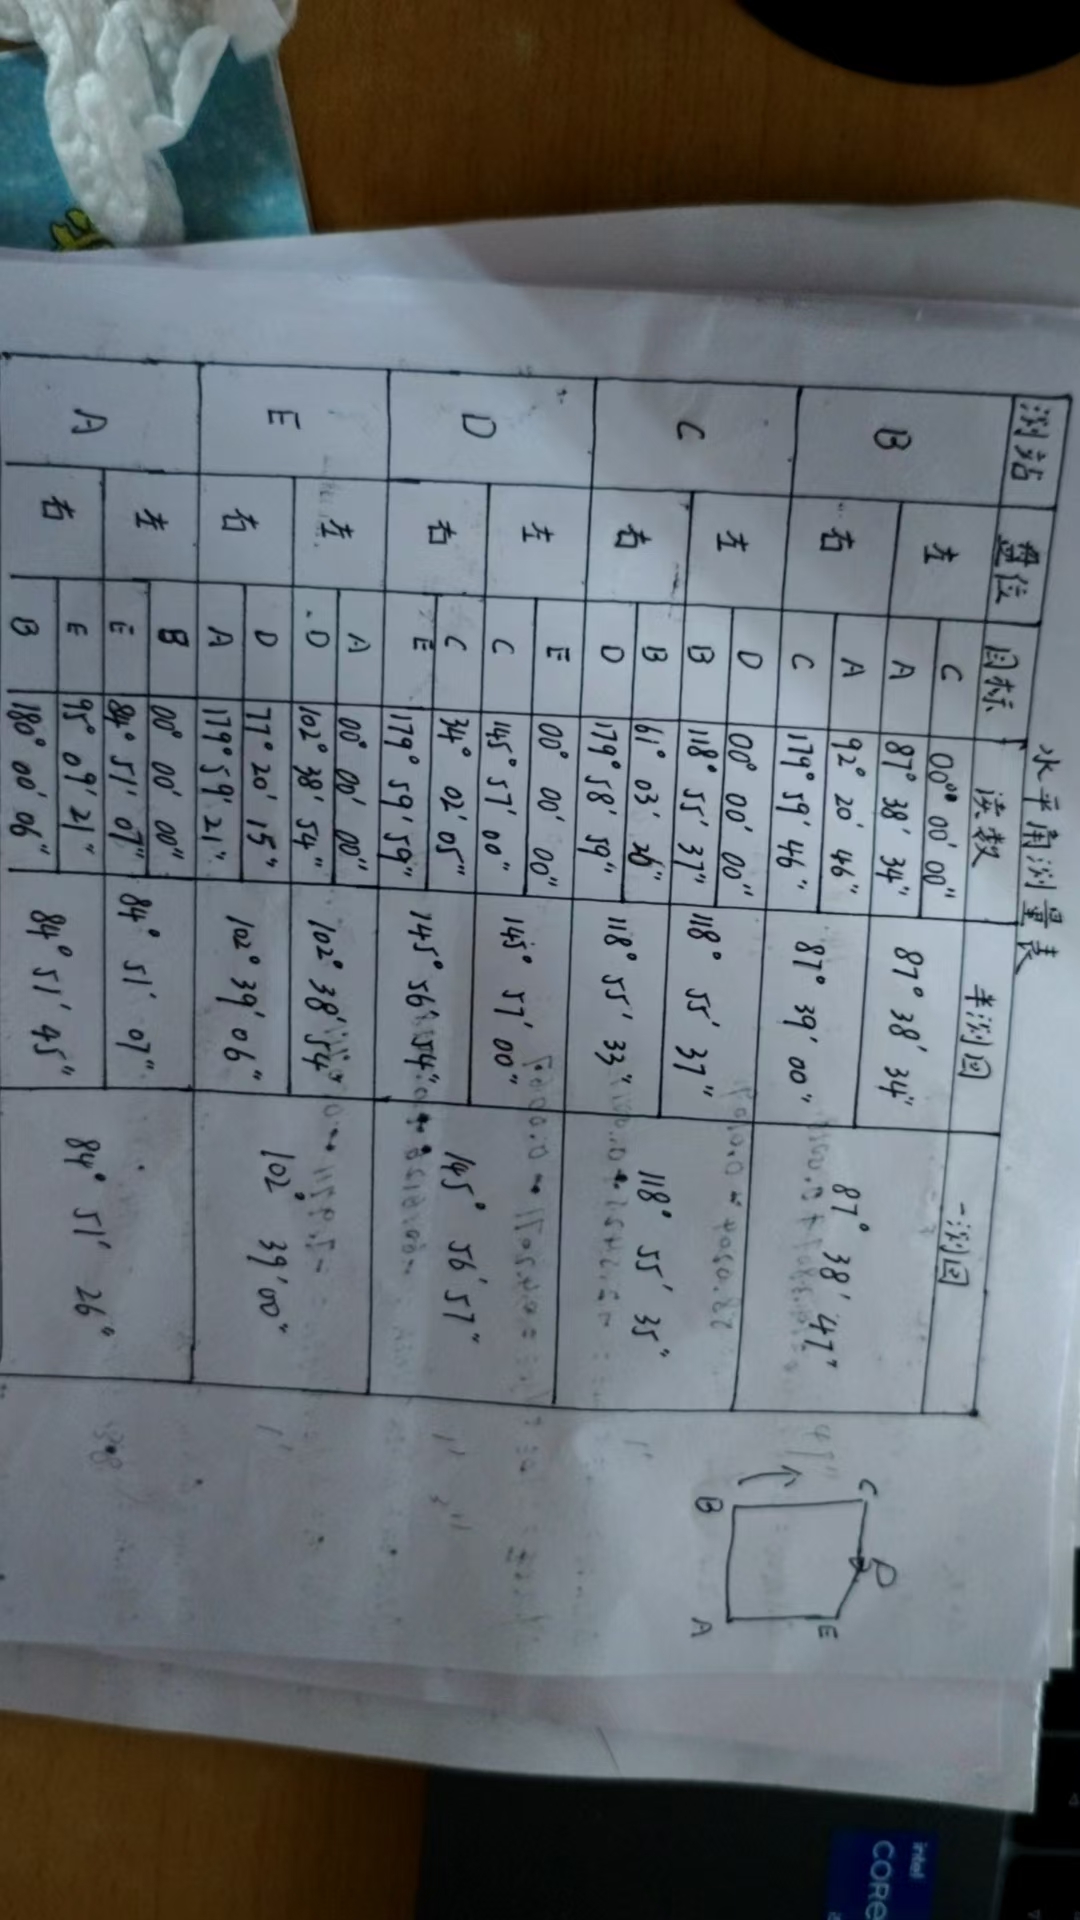 水平角测量表
测站 盘位 目标 读数 半测回 一测回
B 左 C 00° 00' 00" 87° 38' 34" 87° 38' 47"
A 87° 38' 34"
右 A 92° 20' 46" 87° 39' 00"
C 179° 59' 46"
C 左 D 00° 00' 00" 118° 55' 37" 118° 55' 35"
B 118° 55' 37"
右 B 61° 03' 26" 118° 55' 33"
D 179° 58' 59"
D 左 E 00° 00' 00" 145° 57' 00" 145° 56' 57"
C 145° 57' 00"
右 C 34° 02' 05" 145° 56' 54"
E 179° 59' 59"
E 左 A 00° 00' 00" 102° 38' 54" 102° 39' 00"
D 102° 38' 54"
右 D 77° 20' 15" 102° 39' 06"
A 179° 59' 21"
A 左 B 00° 00' 00" 84° 51' 07" 84° 51' 26"
E 84° 51' 07"
右 E 95° 09' 21" 84° 51' 45"
B 180° 00' 06"
C
D
E
B
A
intel
CORE